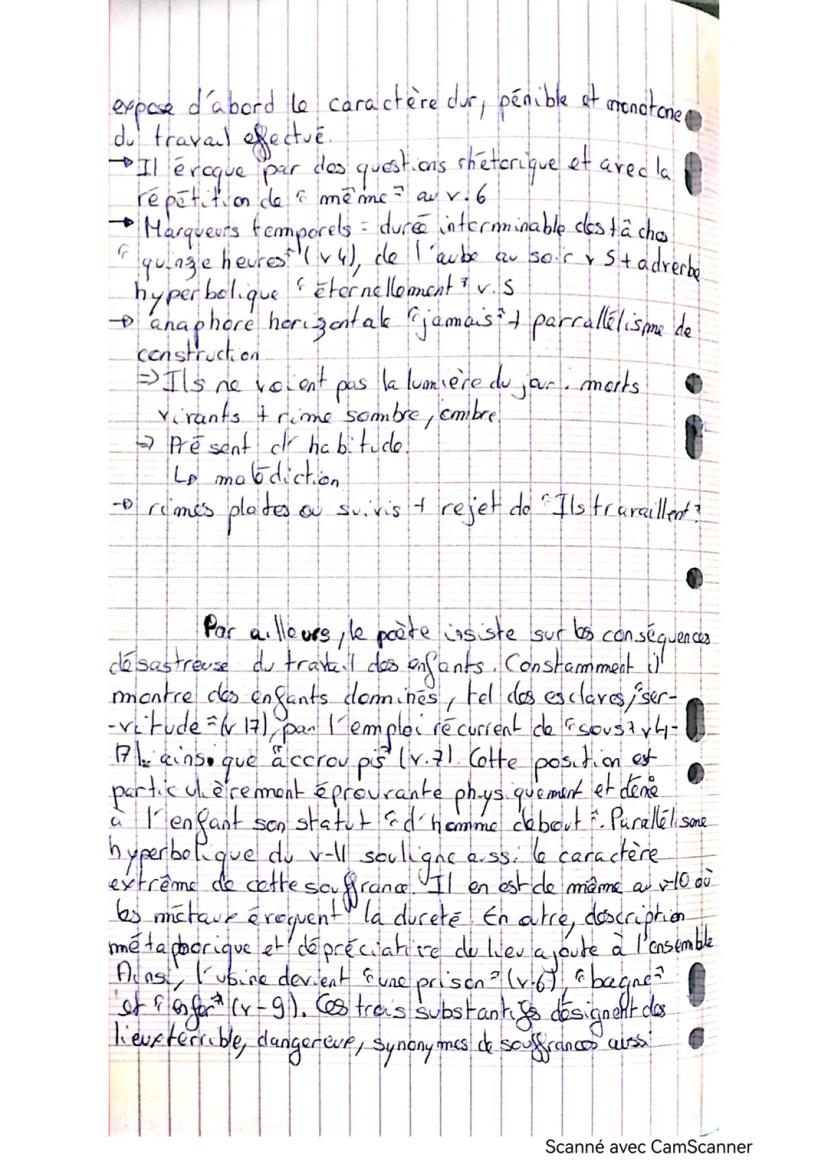 expose d'abord le caractère dur, pénible et monotone
du travail effectué.
→ Il évoque par des questions rhétorique et avec la
répétition de " même " au v.6
→ Marqueurs temporels = durée interminable des tâches
" quinze heures " (v4), de l'aube au soir v 5 + adverbe
hyperbolique " éternellement " v.5
→ anaphore horizontale "jamais" + parrallélisme de
construction
⇒ Ils ne voient pas la lumière du jour. morts
vivants + rime sombre, ombre.
⇒ Présent d'habitude.
↳ malédiction
→ rimes plates ou suivis + rejet de "Ils travaillent"
Par ailleurs, le poète insiste sur les conséquences
désastreuse du travail des enfants. Constamment il
montre des enfants dominés, tel des esclaves, "ser-
-vitude" (v 17), par l'emploi récurrent de "sous" v4-
17 ainsi que "accroupis" (v.7). Cette position est
particulièrement éprouvante physiquement et dénie
à l'enfant son statut "d'homme debout". Parallélisme
hyperbolique du v-11 souligne aussi le caractère
extrême de cette souffrance. Il en est de même au v-10 où
les métaux évoquent la dureté. En outre, description
métaphorique et dépréciative du lieu ajoute à l'ensemble
Ainsi, l'usine devient "une prison" (v.6), "bagne"
et "enfer" (v-9). Ces trois substantifs désignent des
lieux terrible, dangereux, synonymes de souffrances aussi
Scanné avec CamScanner